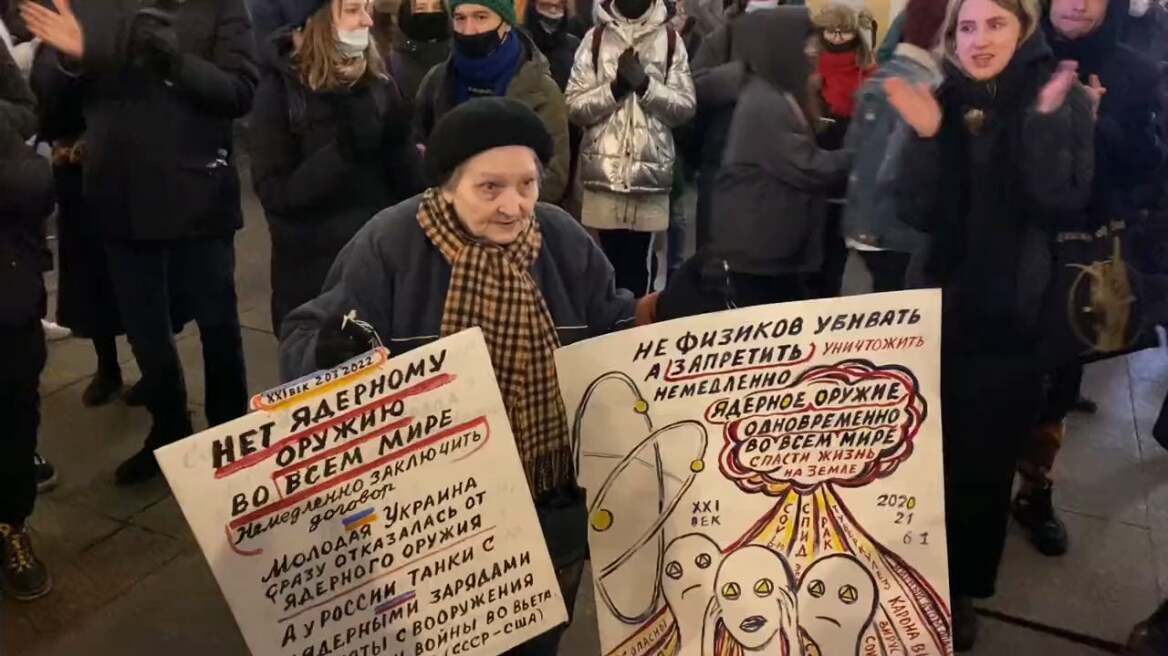 XXI ВЕК 20 3 2022
НЕТ ЯДЕРНОМУ
ОРУЖИЮ
ВО ВСЕМ МИРЕ
НЕМЕДЛЕННО ЗАКЛЮЧИТЬ
ДОГОВОР
МОЛОДАЯ УКРАИНА
СРАЗУ ОТКАЗАЛАСЬ ОТ
ЯДЕРНОГО ОРУЖИЯ
А У РОССИИ ТАНКИ С
ЯДЕРНЫМИ ЗАРЯДАМИ
С ВООРУЖЕНИЯ
ВОЙНЫ ВО ВЬЕТ.
(СССР-США)
НЕ ФИЗИКОВ УБИВАТЬ
А ЗАПРЕТИТЬ УНИЧТОЖИТЬ
НЕМЕДЛЕННО
ЯДЕРНОЕ ОРУЖИЕ
ОДНОВРЕМЕННО
ВО ВСЕМ МИРЕ
СПАСТИ ЖИЗНЬ
НА ЗЕМЛЕ
XXI
ВЕК
2020
21
61
СПИД
РАК
КАРОНА
ВИРУС